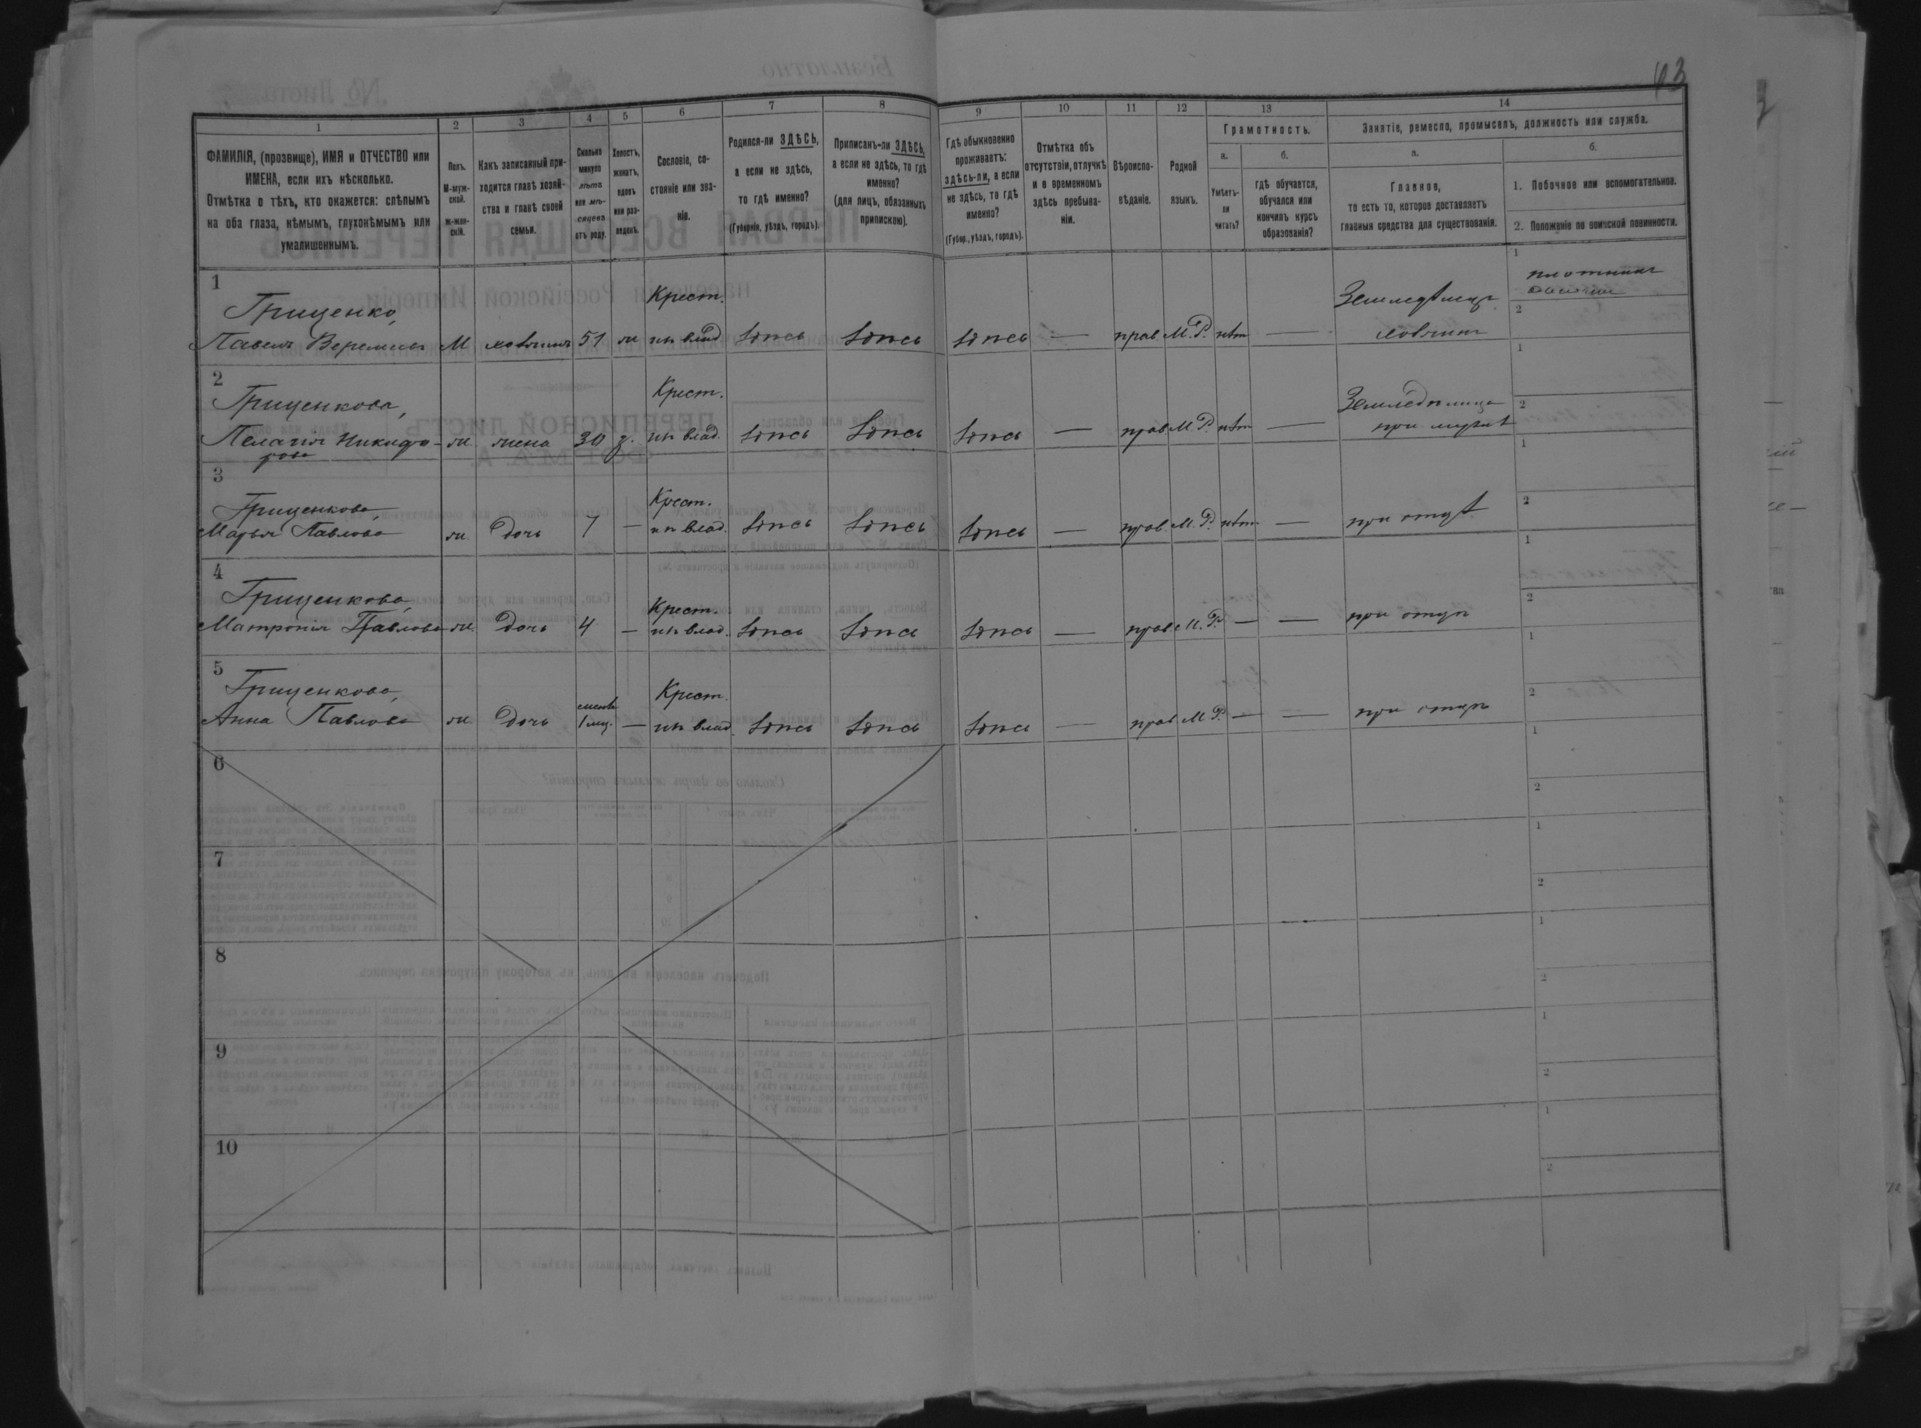 63
1 2 3 4 5 6 7 8 9 10 11 12 13 14
ФАМИЛІЯ, (прозвище), ИМЯ и ОТЧЕСТВО или
ИМЕНА, если ихъ нѣсколько.
Отмѣтка о тѣхъ, кто окажется: слѣпымъ
на оба глаза, нѣмымъ, глухонѣмымъ или
умалишеннымъ.
Полъ.
М-муж-
ской.
ж-жен-
скій.
Какъ записанный при-
ходится главѣ хозяй-
ства и главѣ своей
семьи.
Сколько
минуло
лѣтъ
или мѣ-
сяцевъ
отъ роду.
Холостъ,
женатъ,
вдовъ
или раз-
веденъ.
Сословіе, со-
стояніе или зва-
ніе.
Родился-ли ЗДѢСЬ,
а если не здѣсь,
то гдѣ именно?
(Губернія, уѣздъ, городъ).
Приписанъ-ли ЗДѢСЬ,
а если не здѣсь, то гдѣ
именно?
(для лицъ, обязанныхъ
припискою).
Гдѣ обыкновенно
проживаетъ:
здѣсь-ли, а если
не здѣсь, то гдѣ
именно?
(Губер., уѣздъ, городъ).
Отмѣтка объ
отсутствіи, отлучкѣ
и о временномъ
здѣсь пребыва-
ніи.
Вѣроиспо-
вѣданіе.
Родной
языкъ.
Грамотность.
а.
Умѣетъ-
ли
читать?
б.
гдѣ обучается,
обучался или
кончилъ курсъ
образованія?
Занятіе, ремесло, промыселъ, должность или служба.
а.
Главное,
то есть то, которое доставляетъ
главныя средства для существованія.
б.
1. Побочное или вспомогательное.
2. Положеніе по воинской повинности.
1
Гриценко,
Павелъ М хозяинъ 51 ж
Крест.
ихъ влад.
здпсь здпсь здпсь — прав. М.Р. нѣт —
хозяинъ
1
2
2
Гриценкова,
Пелагія Никифо-
рова
ж. жена 30 з.
Крест.
ихъ влад.
здпсь здпсь здпсь — прав. М.Р. нѣт —
при мужѣ
1
2
3
Гриценкова,
Марья Павлова ж. Дочь 7 —
Крест.
ихъ влад.
здпсь здпсь здпсь — прав. М.Р. нѣт — при отцѣ
1
2
4
Гриценкова,
Матронія Павлова ж. Дочь 4 —
Крест.
ихъ влад.
здпсь здпсь здпсь — прав. М.Р. — — при отцѣ
1
2
5
Гриценкова,
Анна Павлова ж. Дочь 1 мц. —
Крест.
ихъ влад.
здпсь здпсь здпсь — прав. М.Р. — — при отцѣ
1
2
6
1
2
7
1
2
8
1
2
9
1
2
10
1
2